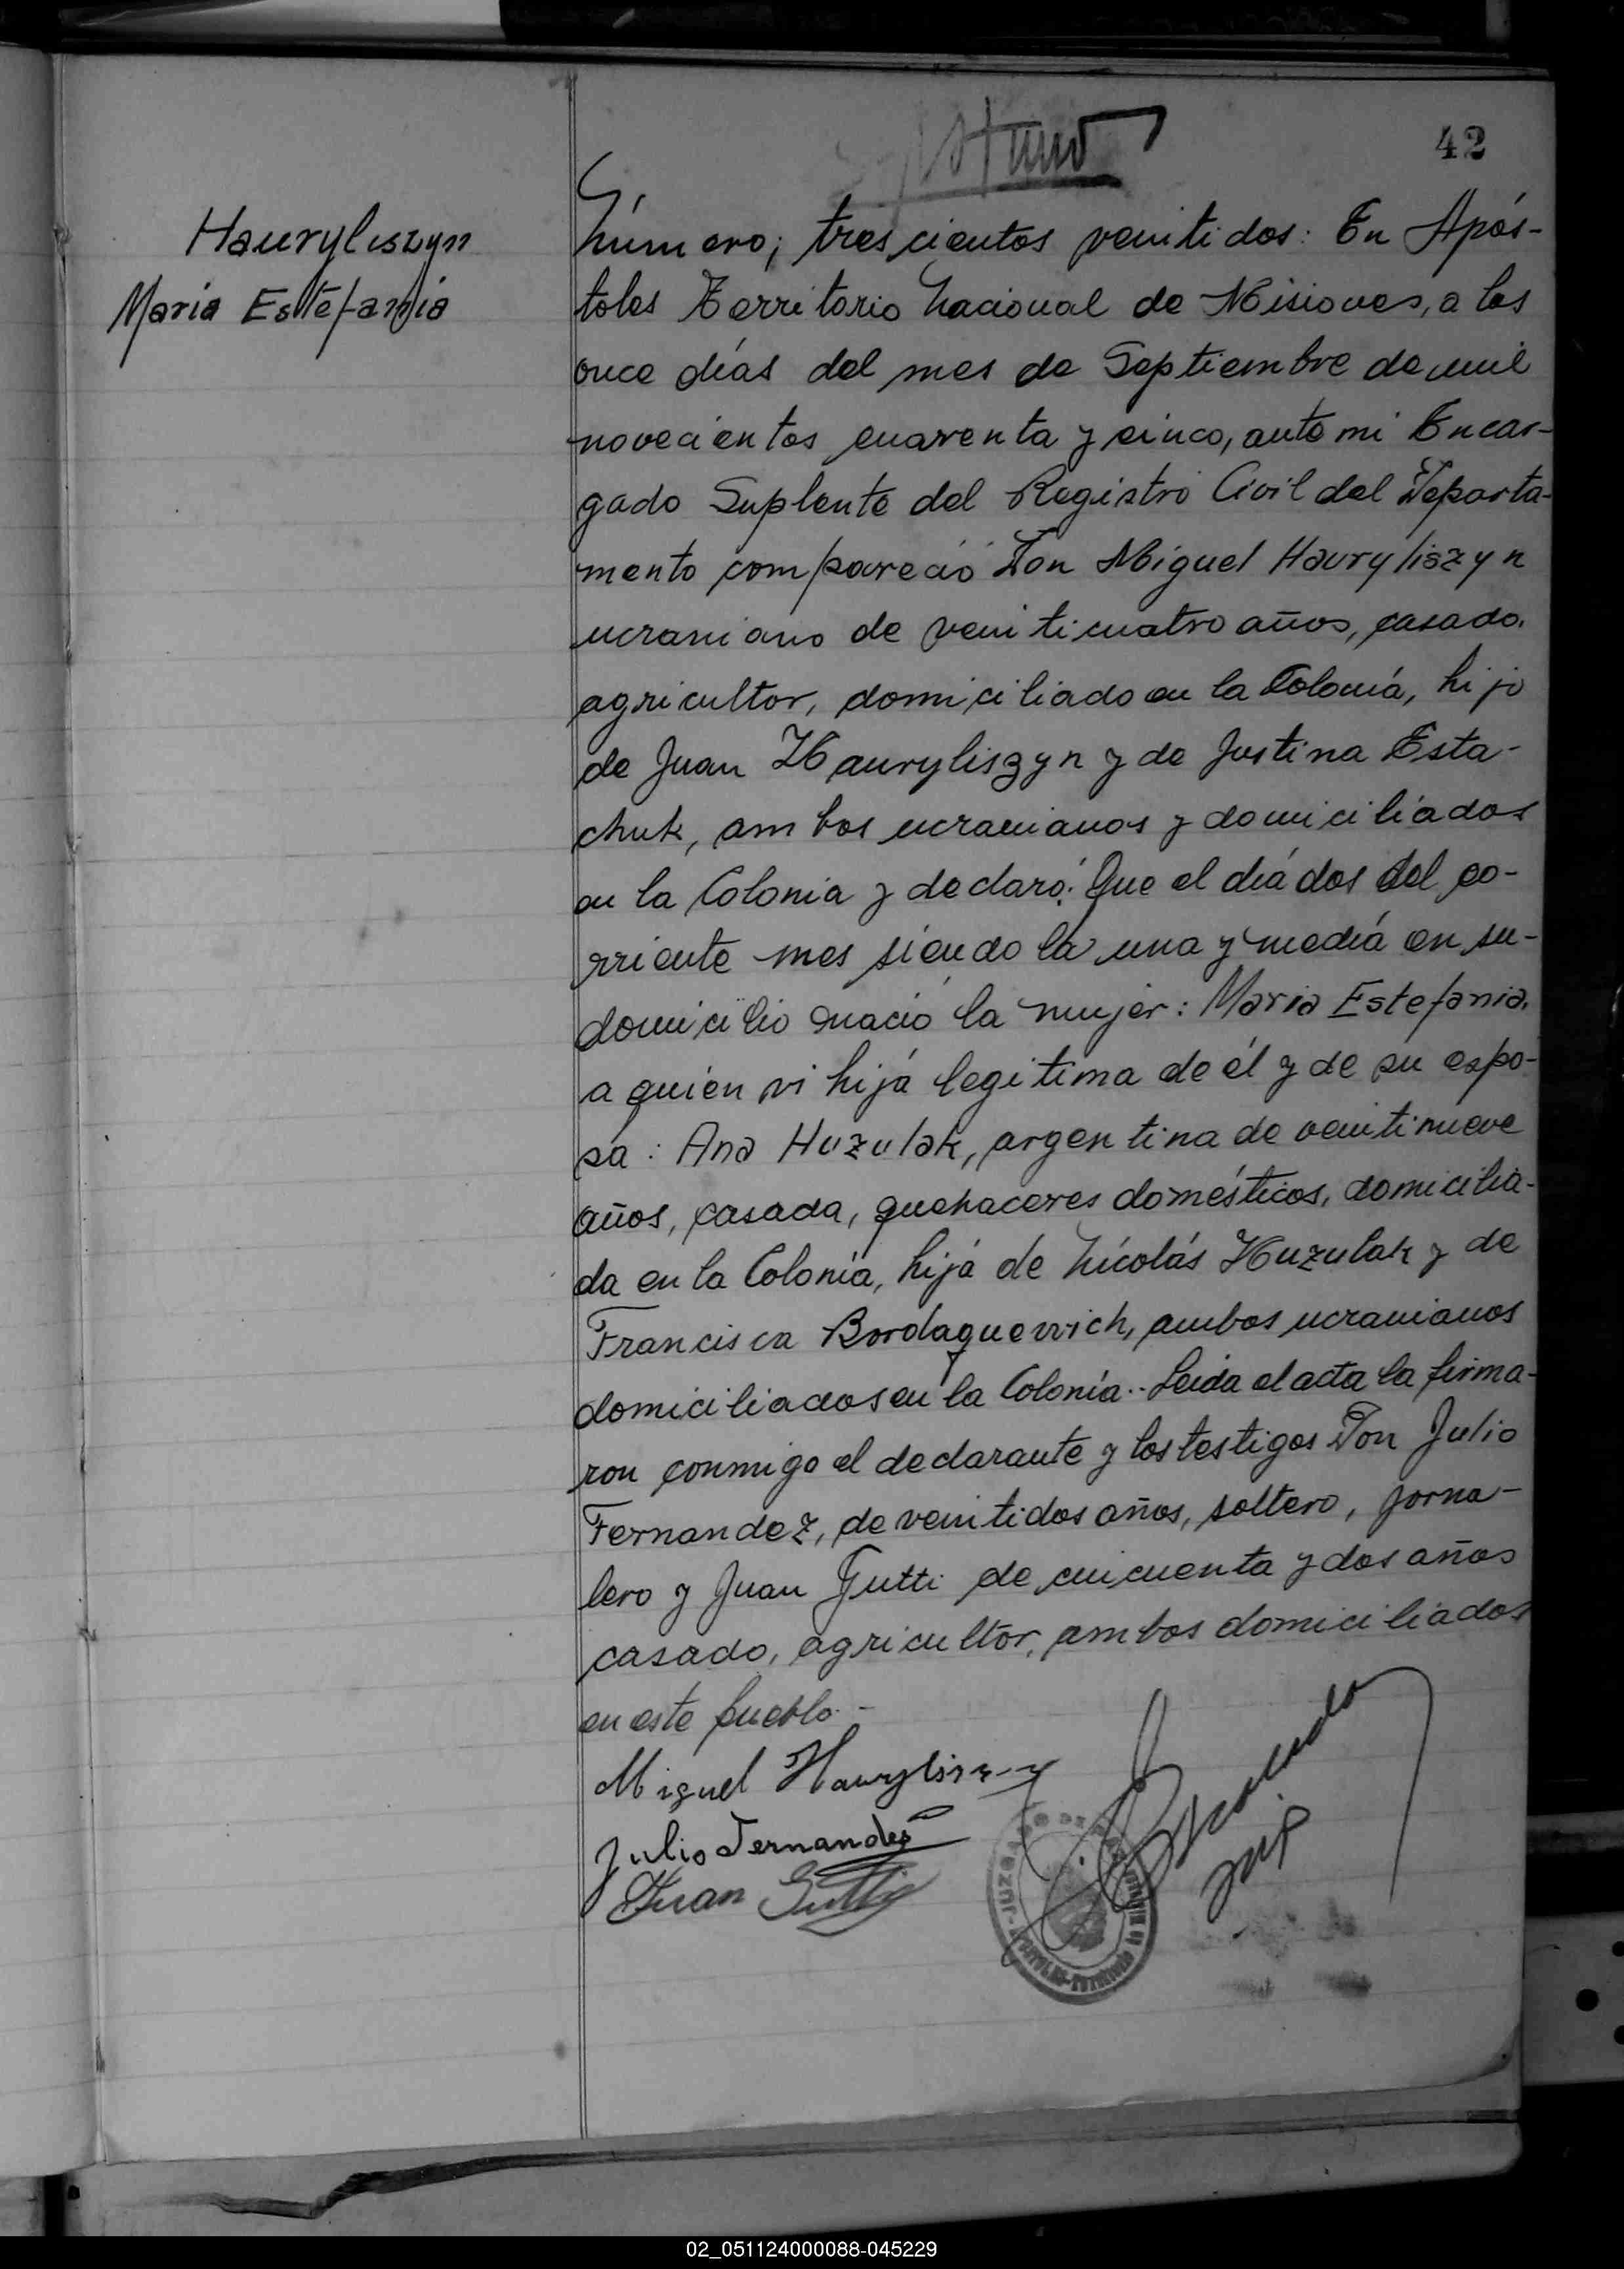 42
Hauryliszyn
Maria Estefania
Número; trescientos venitidos: En Após-
toles Territorio Nacional de Misiones, a los
once días del mes de Septiembre de mil
novecientos cuarenta y cinco, ante mi Encar-
gado Suplente del Registro Civil del Departa-
mento compareció Don Miguel Hauryliszyn
ucraniano de veniticuatro años, casado.
agricultor, domiciliado en la Colonia, hijo
de Juan Hauryliszyn y de Justina Esta-
chuk, ambos ucranianos y domiciliados
en la Colonia y declaró: Que el día dos del co-
rriente mes siendo la una y media en su-
domicilio nació la mujer: Maria Estefania.
a quien vi hija legitima de él y de su espo-
sa: Ana Huzulak, argentina de venitinueve
años, casada, quehaceres domésticos, domicilia-
da en la Colonia, hija de Nicolás Huzulak y de
Francisca Bordaquevvich, ambos ucranianos
domiciliados en la Colonia.. Leida el acta la firma-
ron conmigo el declarante y los testigos Don Julio
Fernandez, de venitidos años, soltero, jorna-
lero y Juan Gutti de cincuenta y dos años
casado, agricultor, ambos domiciliados
en este pueblo.-
Miguel Hauryliszyn
Julio Fernandez
Juan Gutti
02_051124000088-045229